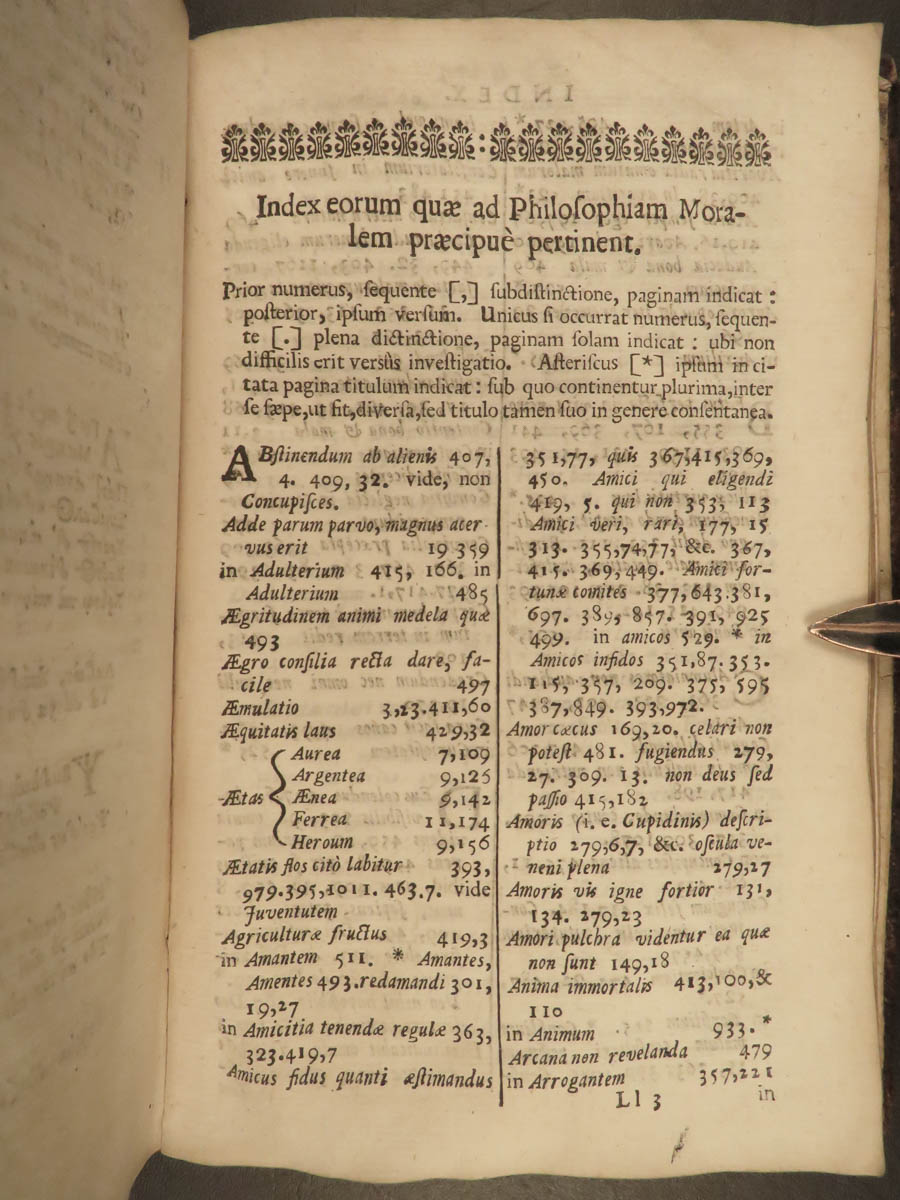 Index eorum quæ ad Philoſophiam Mora-
lem præcipuè pertinent.
Prior numerus, ſequente [,] ſubdiſtinctione, paginam indicat :
poſterior, ipſum verſum. Unicus ſi occurrat numerus, ſequen-
te [.] plena dictinctione, paginam ſolam indicat : ubi non
difficilis erit versûs inveſtigatio. Aſteriſcus [*] ipſum in ci-
tata pagina titulum indicat : ſub quo continentur plurima, inter
ſe ſæpe, ut fit, diverſa, ſed titulo tamen ſuo in genere conſentanea.
ABſtinendum ab alienis 407,
4. 409, 32. vide, non
Concupiſces.
Adde parum parvo, magnus acer-
vus erit 19 359
in Adulterium 415, 166. in
Adulterium 485
Ægritudinem animi medela quæ
493
Ægro conſilia recta dare, fa-
cile 497
Æmulatio 3,23.411,60
Æquitatis laus 429,32
Aurea 7,109
Argentea 9,126
Ætas Ænea 9,142
Ferrea 11,174
Heroum 9,156
Ætatis flos citò labitur 393,
979.395,1011. 463.7. vide
Juventutem
Agriculturæ fructus 419,3
in Amantem 511. * Amantes,
Amentes 493. redamandi 301,
19,27
in Amicitia tenendæ regulæ 363,
323.419,7
Amicus fidus quanti æſtimandus
351,77, quis 367,415,369,
450. Amici qui eligendi
419, 5. qui non 353, 113
Amici veri, rari, 177, 15
313. 355,74,77, &c. 367,
415. 369,449. Amici for-
tunæ comites 377,643.381,
697. 389,857. 391, 925
499. in amicos 529. * in
Amicos infidos 351,87.353.
115, 357, 209. 375, 595
387,849. 393,972.
Amor cæcus 169,20. celari non
poteſt 481. fugiendus 279,
27. 309. 13. non deus ſed
paſſio 415,182
Amoris (i. e. Cupidinis) deſcri-
ptio 279,6,7, &c. oſcula ve-
neni plena 279,27
Amoris vis igne fortior 131,
134. 279,23
Amori pulchra videntur ea quæ
non ſunt 149,18
Anima immortalis 413,100,&
110
in Animum 933.*
Arcana non revelanda 479
in Arrogantem 357,221
Ll 3 in